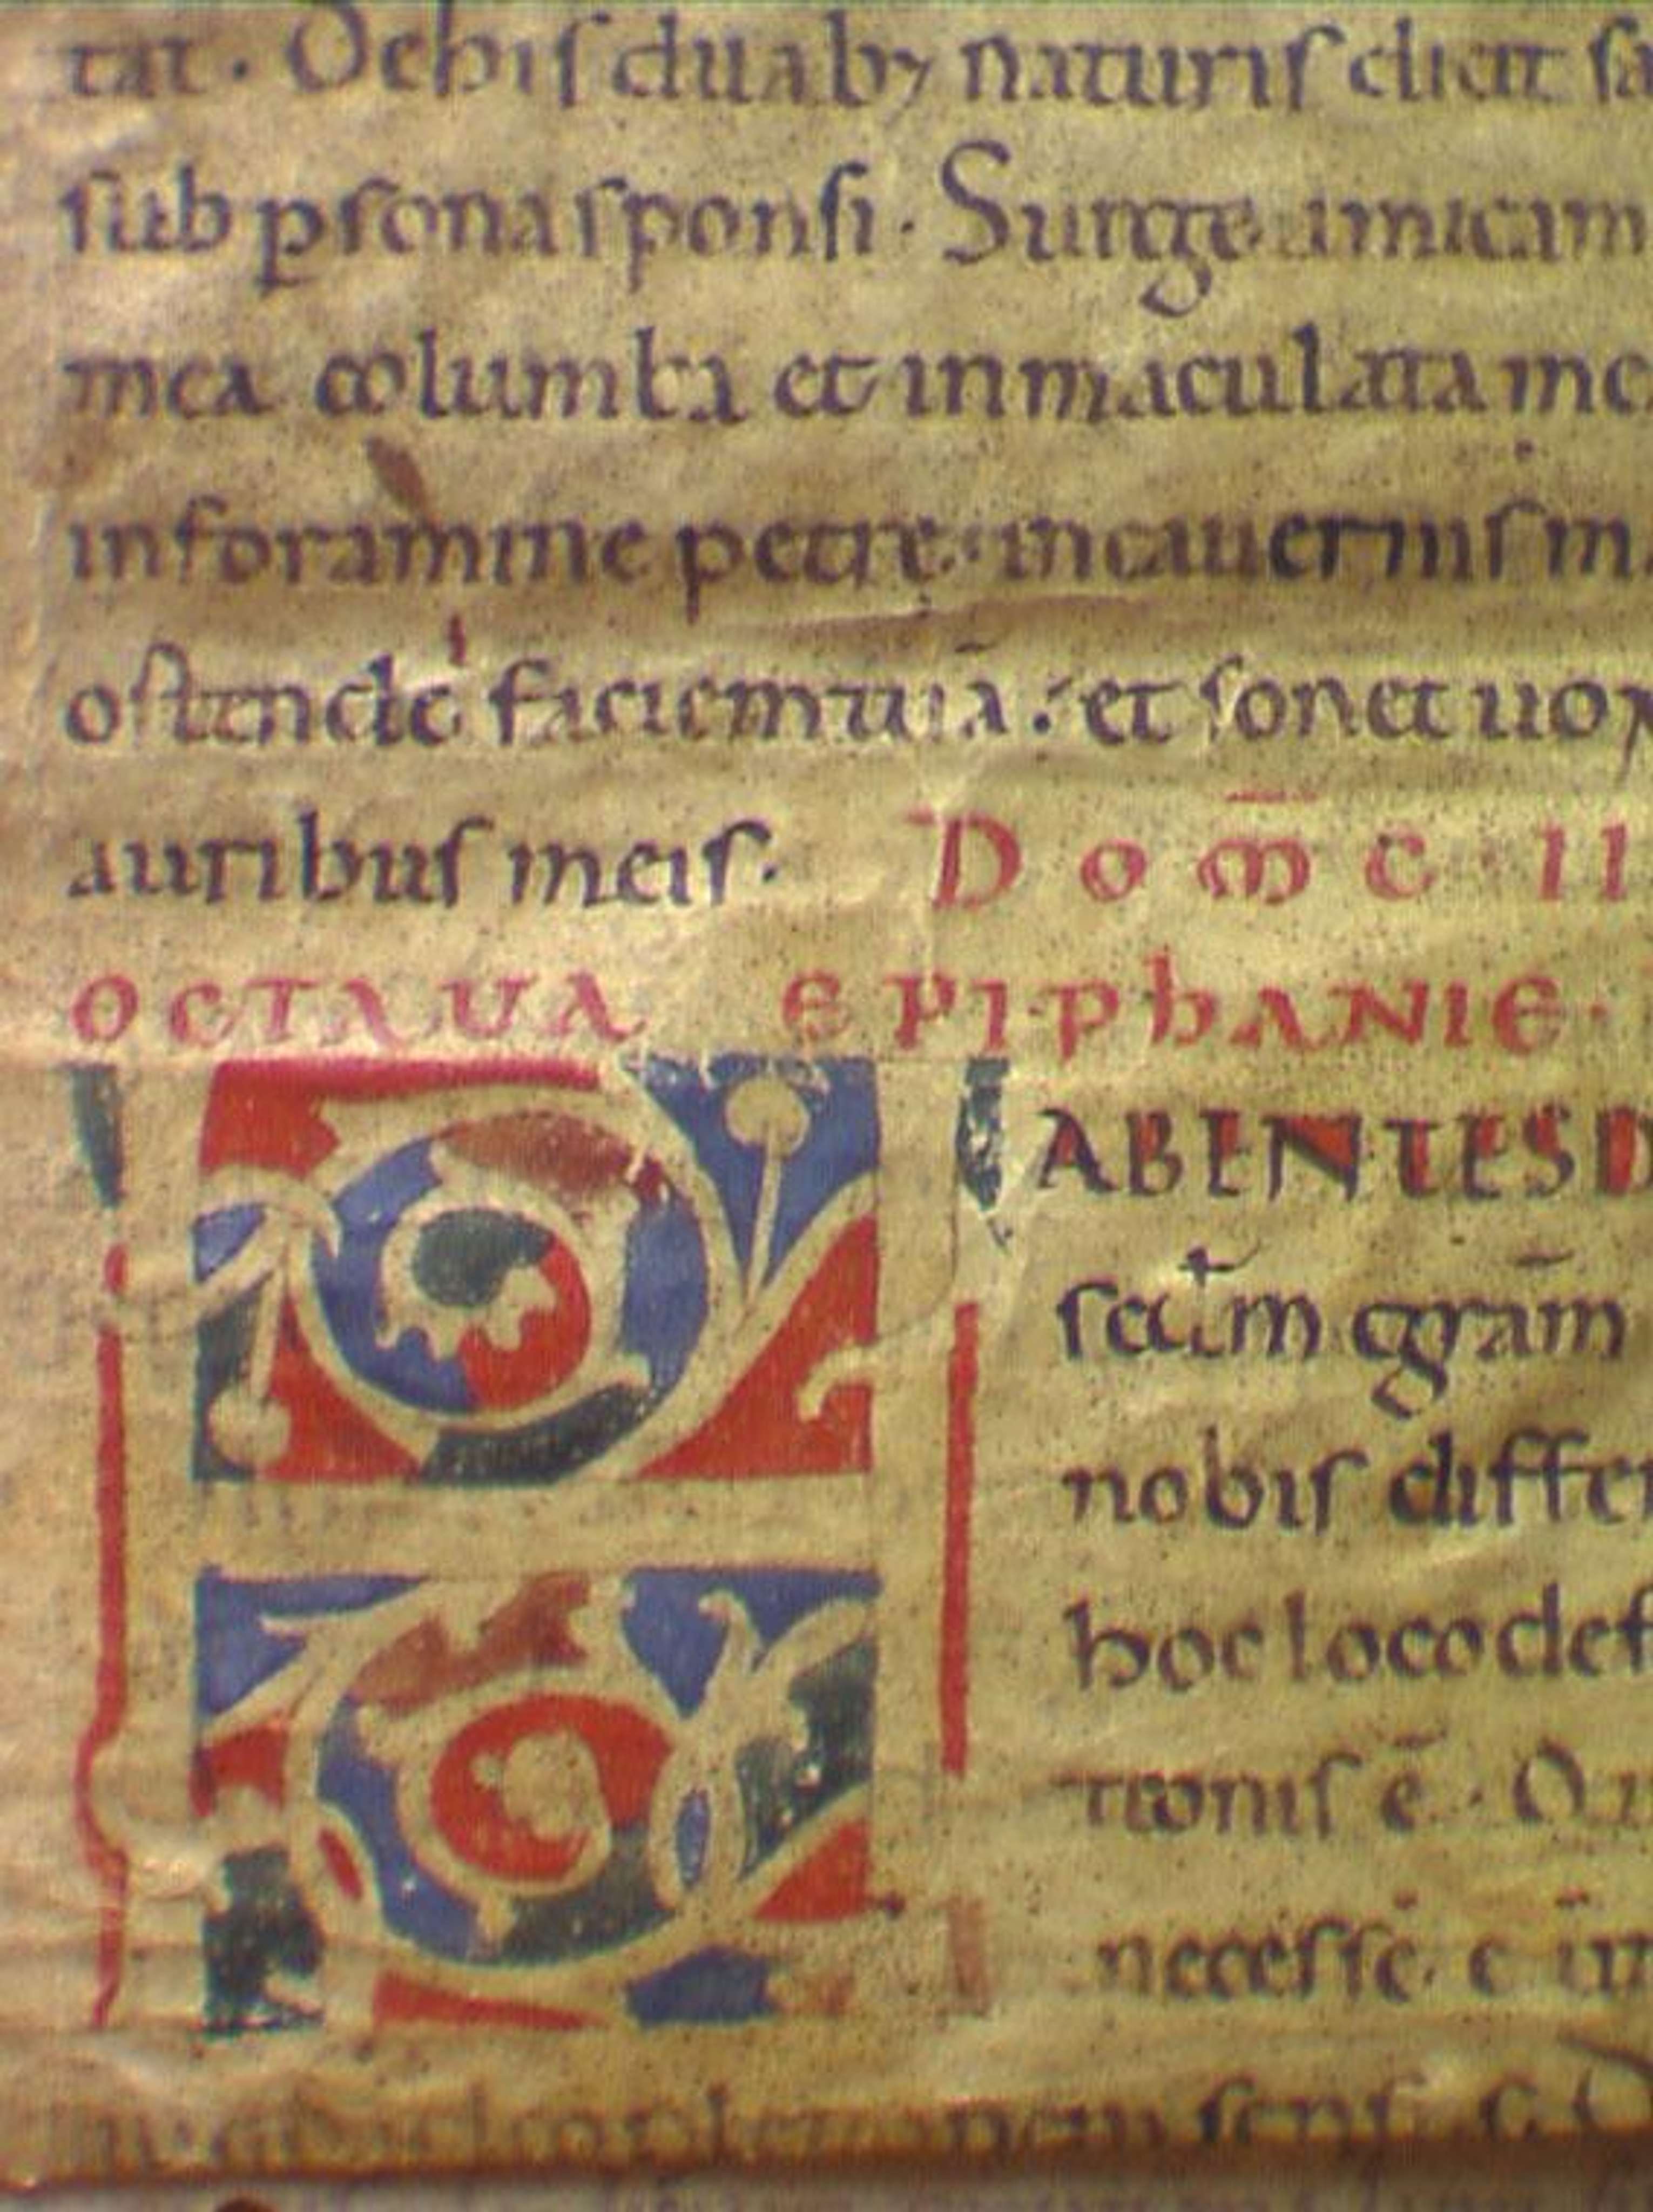 tat. De his duab; naturis dicit
sub p̲sona sponsi. Surge amica m
mea columba et inmaculata me
in foramine petrę. in cauernis m
ostende faciem tuā. et sonet uox
auribus meis. DOM̄C II
OCTAUA EPIPHANIE.
HABENTES D
scd̄m gr̄am
nobis differ
hoc loco def
tionis ē. Q
necesse ē